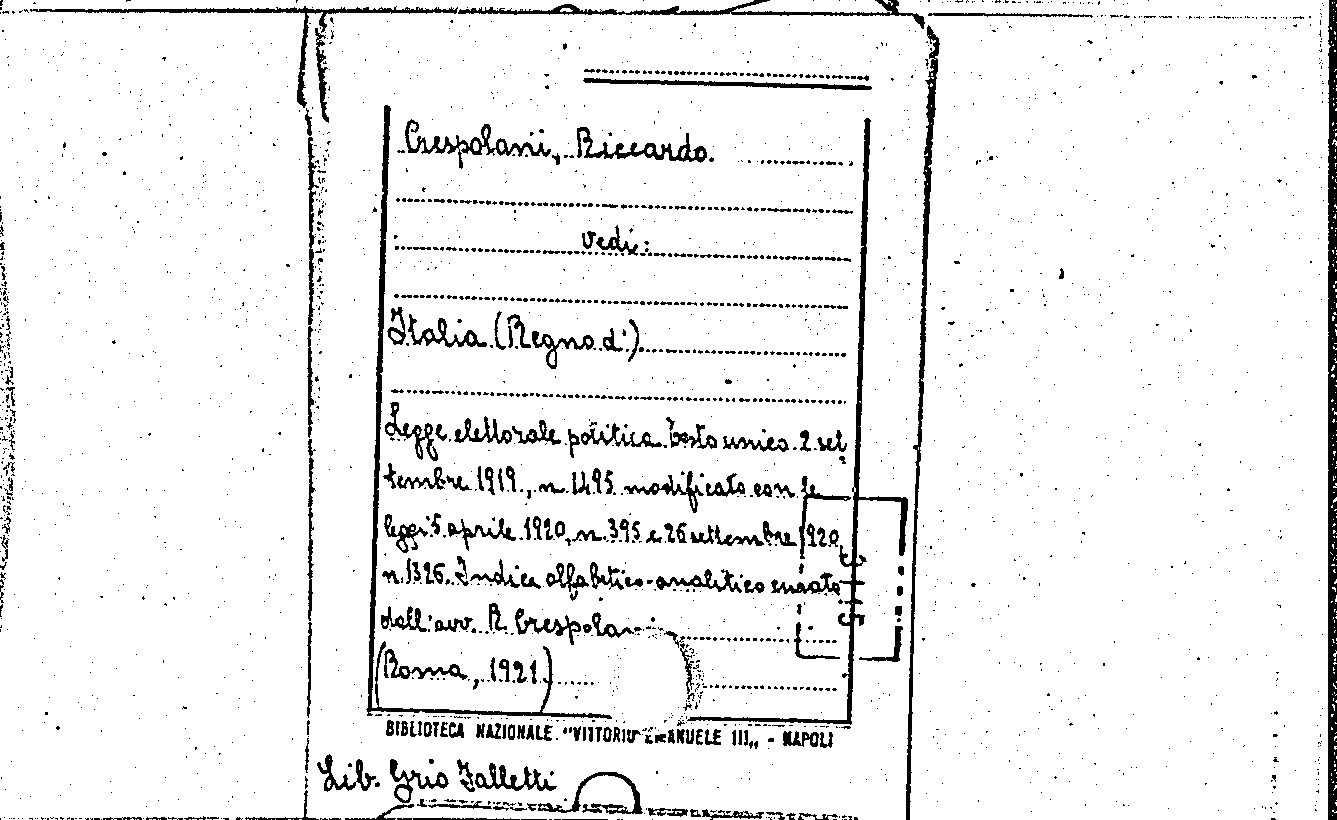 Crespolani, Riccardo.
vedi:
Italia (Regno d')
Legge elettorale politica. Testo unico 2 set
tembre 1919, n. 1495 modificato con le
leggi 5 aprile 1920, n. 395 e 26 settembre 1920,
n. 1326. Indice alfabetico-analitico curato
dall'avv. R. Crespolani
(Roma, 1921)
BIBLIOTECA NAZIONALE "VITTORIO EMANUELE III„ - NAPOLI
Lib. Grio Falletti